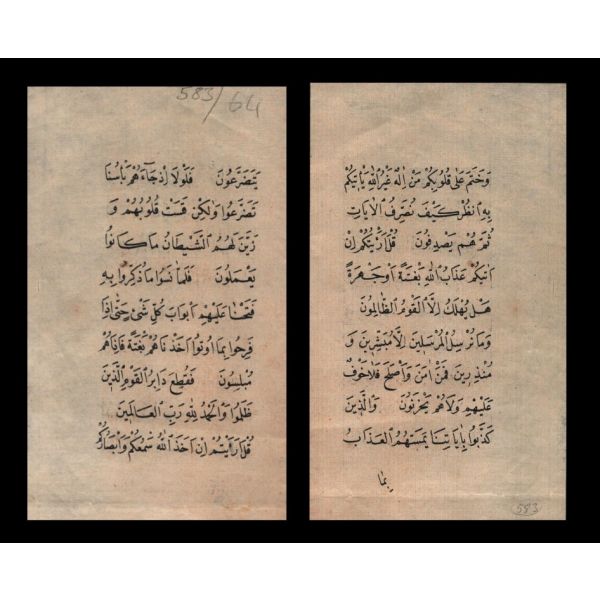 583/64
يَتَضَرَّعُونَ فَلَوْلَا اِذْجَاءَهُمْ بَأْسُنَا
تَضَرَّعُوا وَلٰكِنْ قَسَتْ قُلُوبُهُمْ وَ
زَيَّنَ لَهُمُ الشَّيْطَانُ مَا كَانُوا
يَعْمَلُونَ فَلَمَّا نَسُوا مَا ذُكِّرُوا بِهِ
فَتَحْنَا عَلَيْهِمْ اَبْوَابَ كُلِّ شَىْءٍ حَتّٰى اِذَا
فَرِحُوا بِمَا اُوتُوا اَخَذْنَاهُمْ بَغْتَةً فَاِذَاهُمْ
مُبْلِسُونَ فَقُطِعَ دَابِرُ الْقَوْمِ الَّذِينَ
ظَلَمُوا وَالْحَمْدُ لِلّٰهِ رَبِّ الْعَالَمِينَ
قُلْ اَرَاَيْتُمْ اِنْ اَخَذَ اللّٰهُ سَمْعَكُمْ وَاَبْصَارَكُمْ
وَخَتَمَ عَلٰى قُلُوبِكُمْ مَنْ اِلٰهٌ غَيْرُ اللّٰهِ يَأْتِيكُمْ
بِهِ اُنْظُرْ كَيْفَ نُصَرِّفُ الْاٰيَاتِ
ثُمَّ هُمْ يَصْدِفُونَ قُلْ اَرَاَيْتَكُمْ اِنْ
اَتٰيكُمْ عَذَابُ اللّٰهِ بَغْتَةً اَوْ جَهْرَةً
هَلْ يُهْلَكُ اِلَّا الْقَوْمُ الظَّالِمُونَ
وَمَا نُرْسِلُ الْمُرْسَلِينَ اِلَّا مُبَشِّرِينَ وَ
مُنْذِرِينَ فَمَنْ اٰمَنَ وَاَصْلَحَ فَلَا خَوْفٌ
عَلَيْهِمْ وَلَا هُمْ يَحْزَنُونَ وَالَّذِينَ
كَذَّبُوا بِاٰيَاتِنَا يَمَسُّهُمُ الْعَذَابُ
بِمَا
583